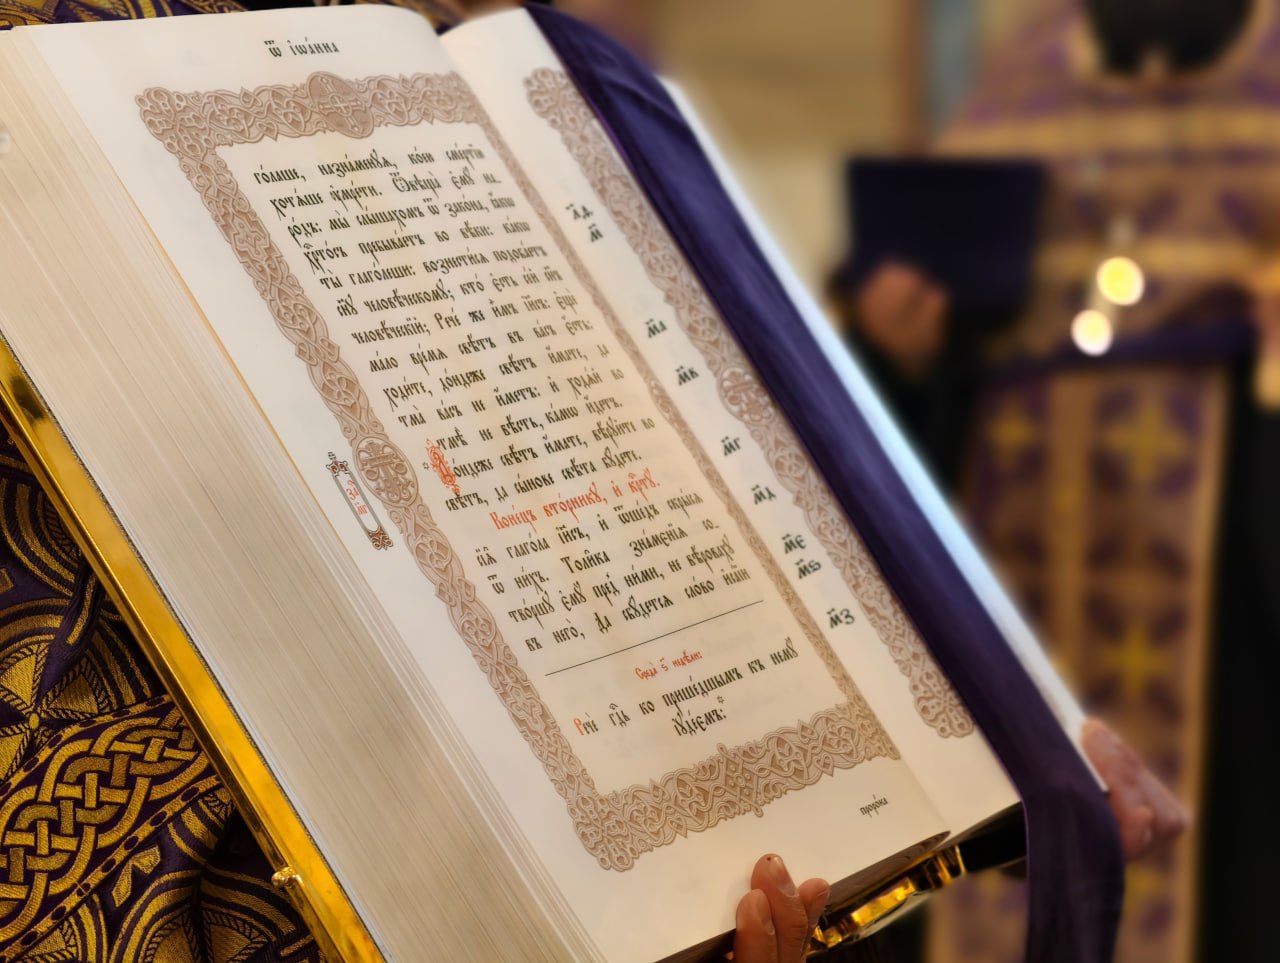 Ѿ ІѠА́ННА
го́лаше, назна́менꙋѧ, ко́ею сме́ртїю
хотѧ́ше ᲂу҆мре́ти. Ѿвѣща̀ є҆мꙋ̀ на-
ро́дъ: мы̀ слы́шахомъ ѿ зако́на, ꙗ҆́кѡ
хрⷭ҇то́съ пребыва́етъ во вѣ́ки: ка́кѡ
ты̀ глаго́леши: вознести́сѧ подоба́етъ
сн҃ꙋ человѣ́ческомꙋ; кто̀ є҆́сть се́й сн҃ъ
человѣ́ческїй; Рече́ же и҆̀мъ і҆и҃съ: є҆щѐ
ма́ло вре́мѧ свѣ́тъ въ ва́съ є҆́сть:
ходи́те, до́ндеже свѣ́тъ и҆́мате, да
тма̀ ва́съ не и҆́метъ: и҆ ходѧ́й во
тмѣ̀ не вѣ́сть, ка́мѡ и҆́детъ.
До́ндеже свѣ́тъ и҆́мате, вѣ́рꙋйте во
свѣ́тъ, да сы́нове свѣ́та бꙋ́дете.
Коне́цъ вто́рникꙋ, и҆ крⷭ҇тꙋ̀.
сїѧ̑ глаго́ла і҆и҃съ, и҆ ѿше́дъ скры́сѧ
ѿ ни́хъ. Толи̑ка зна́мєнїѧ со-
тво́ршꙋ є҆мꙋ̀ пред̾ ни́ми, не вѣ́ровахꙋ
въ него̀, да сбꙋ́детсѧ сло́во и҆са́їи
Речѐ гдⷭ҇ь ко прише́дшымъ къ немꙋ̀
і҆ꙋде́ємъ:
проро́ка
л҃д
м҃
м҃а
м҃в
м҃г
м҃д
м҃є
м҃ѕ
м҃з